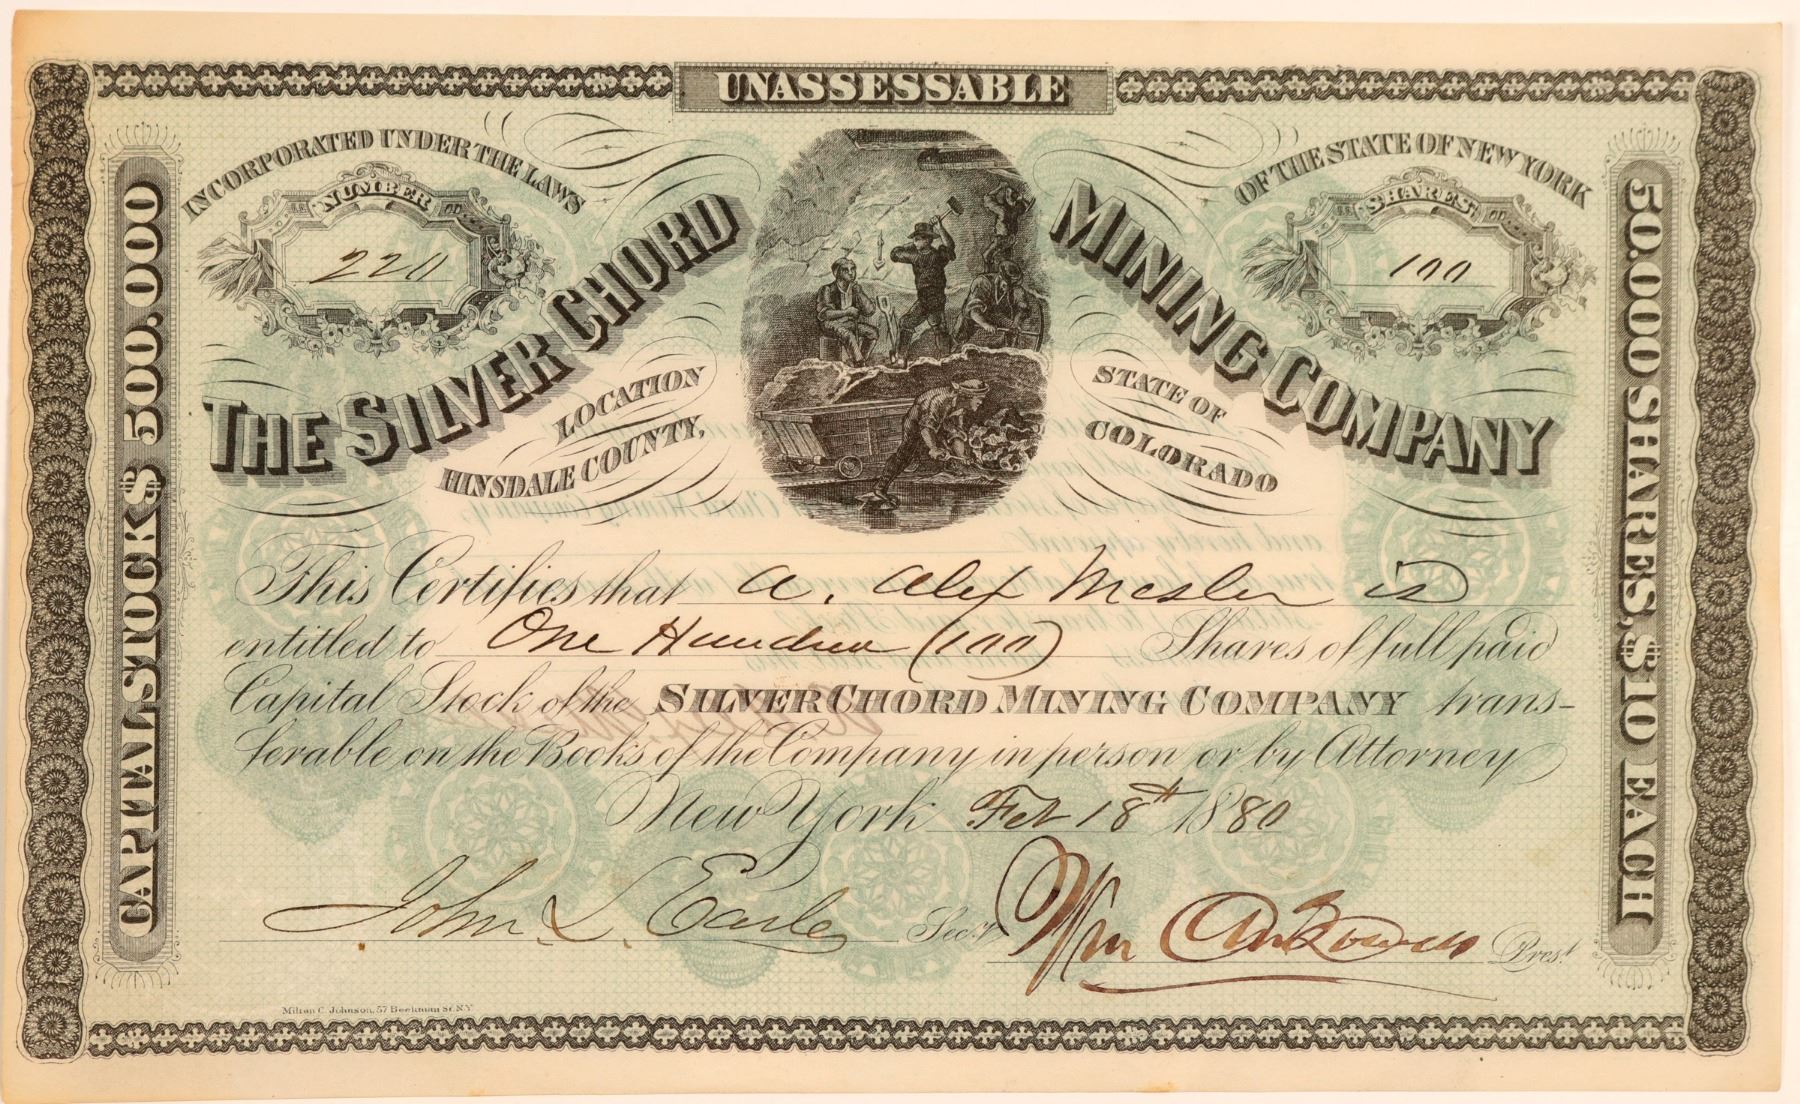 UNASSESSABLE
INCORPORATED UNDER THE LAWS
OF THE STATE OF NEW YORK
NUMBER
220
SHARES
100
THE SILVER CHORD
MINING COMPANY
LOCATION
HINSDALE COUNTY,
STATE OF
COLORADO
CAPITAL STOCK $ 500.000
50.000 SHARES, $10 EACH
This Certifies that A. Alex Mesler is
entitled to One Hundred (100) Shares of full paid
Capital Stock of the SILVER CHORD MINING COMPANY trans-
ferable on the Books of the Company in person or by Attorney
New York Feb 18th 1880
John L. Earle Secy
Wm Prest
Milton C. Johnson, 57 Beekman St. N.Y.